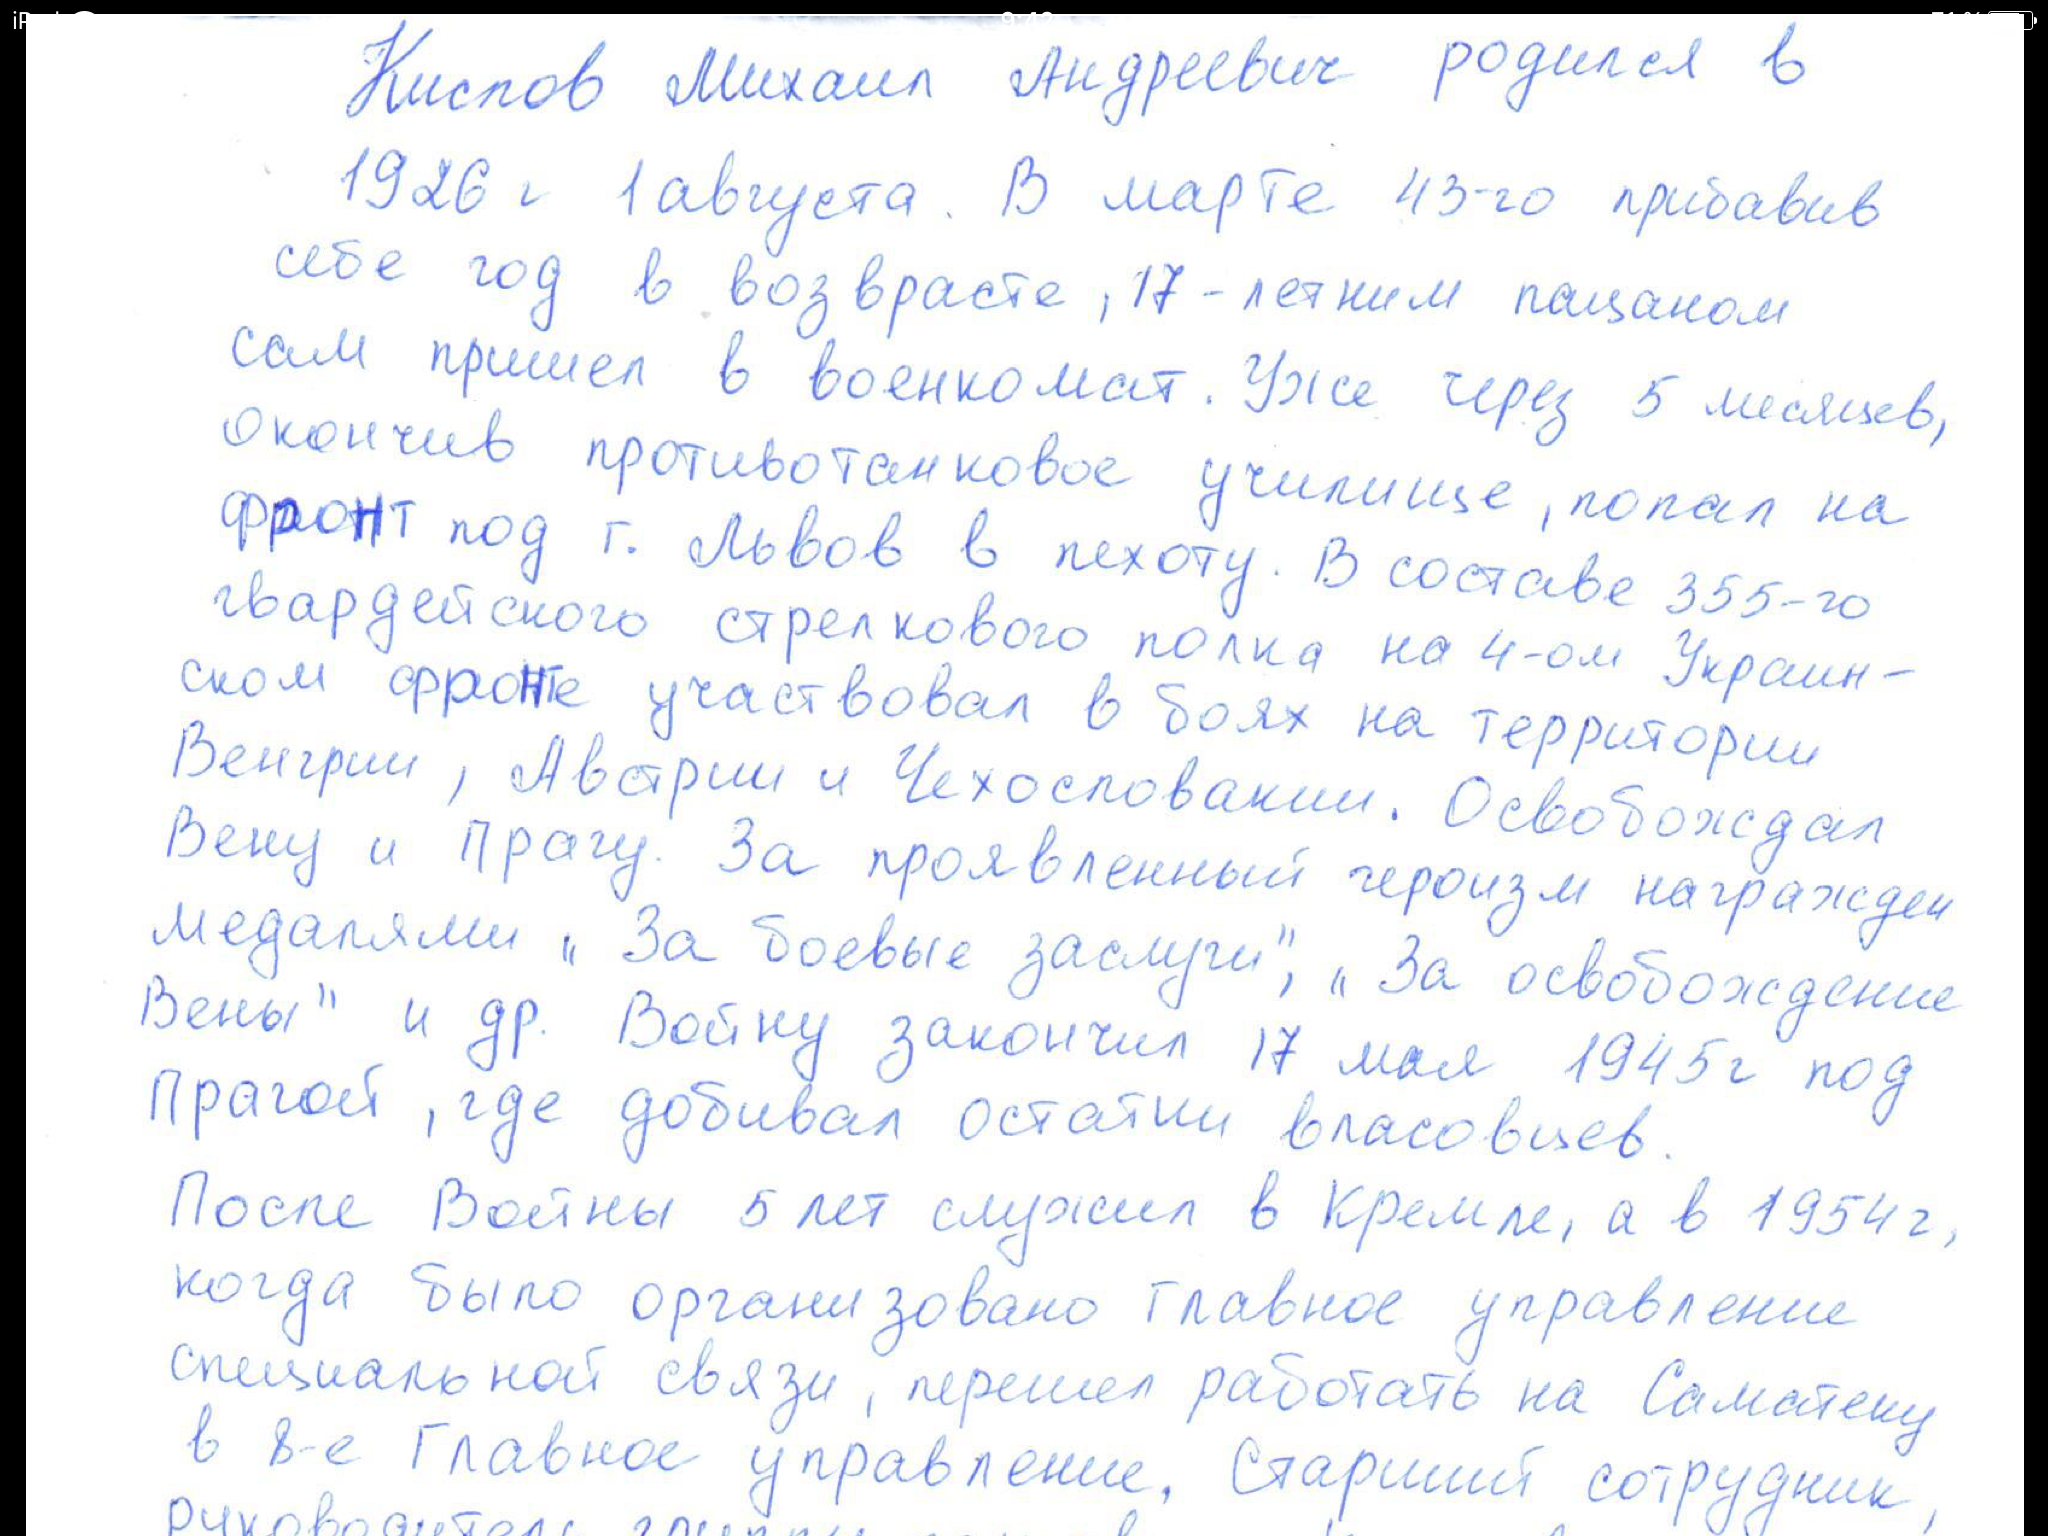 Кислов Михаил Андреевич родился в
1926 г 1 августа. В марте 43-го прибавив
себе год в возврасте, 17-летним пацаном
сам пришел в военкомат. Уже через 5 месяцев,
окончив противотанковое училище, попал на
фронт под г. Львов в пехоту. В составе 355-го
гвардейского стрелкового полка на 4-ом Украин-
ском фронте участвовал в боях на территории
Венгрии, Австрии и Чехословакии. Освобождал
Вену и Прагу. За проявленный героизм награжден
медалями „За боевые заслуги", „За освобождение
Вены" и др. Войну закончил 17 мая 1945г под
Прагой, где добивал остатки власовцев.
После Войны 5 лет служил в Кремле, а в 1954г,
когда было организовано Главное управление
специальной связи, перешел работать на Саматеку
в 8-е Главное управление. Старший сотрудник,
руководитель группы